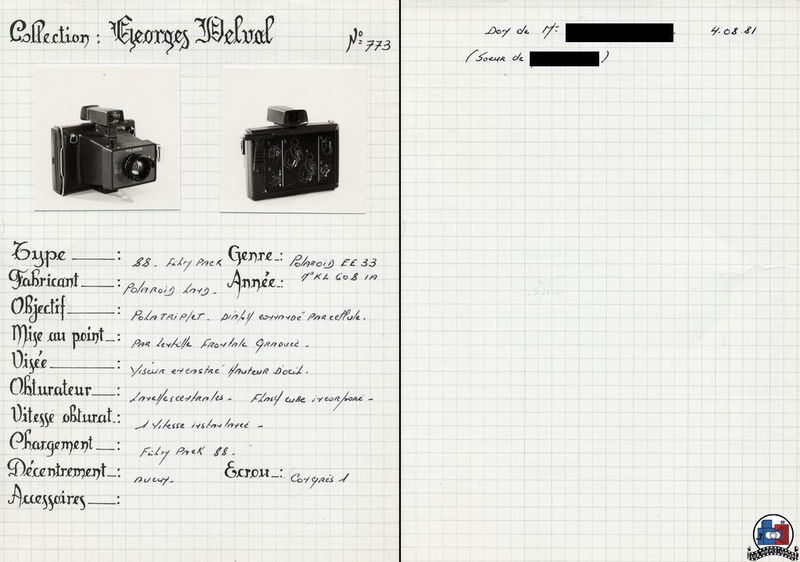 Collection : Georges Delval
N° 773
Type : 88. Film Pack Genre : Polaroid EE 33
Fabricant : Polaroid Land. Année : N° KL 608 1A
Objectif : Polatriplet. Diaph commandé par cellule.
Mise au point : Par lentille Frontale Graduée.
Visée : Viseur encastré Hauteur D'oeil.
Obturateur : Lamelles - Flash cube incorporé -
Vitesse obturat. : 1 Vitesse instantanée -
Chargement : Film Pack 88.
Décentrement : aucun. Ecrou : Congrès 1
Accessoires :
Don de Mme 4.08.81
(Soeur de )